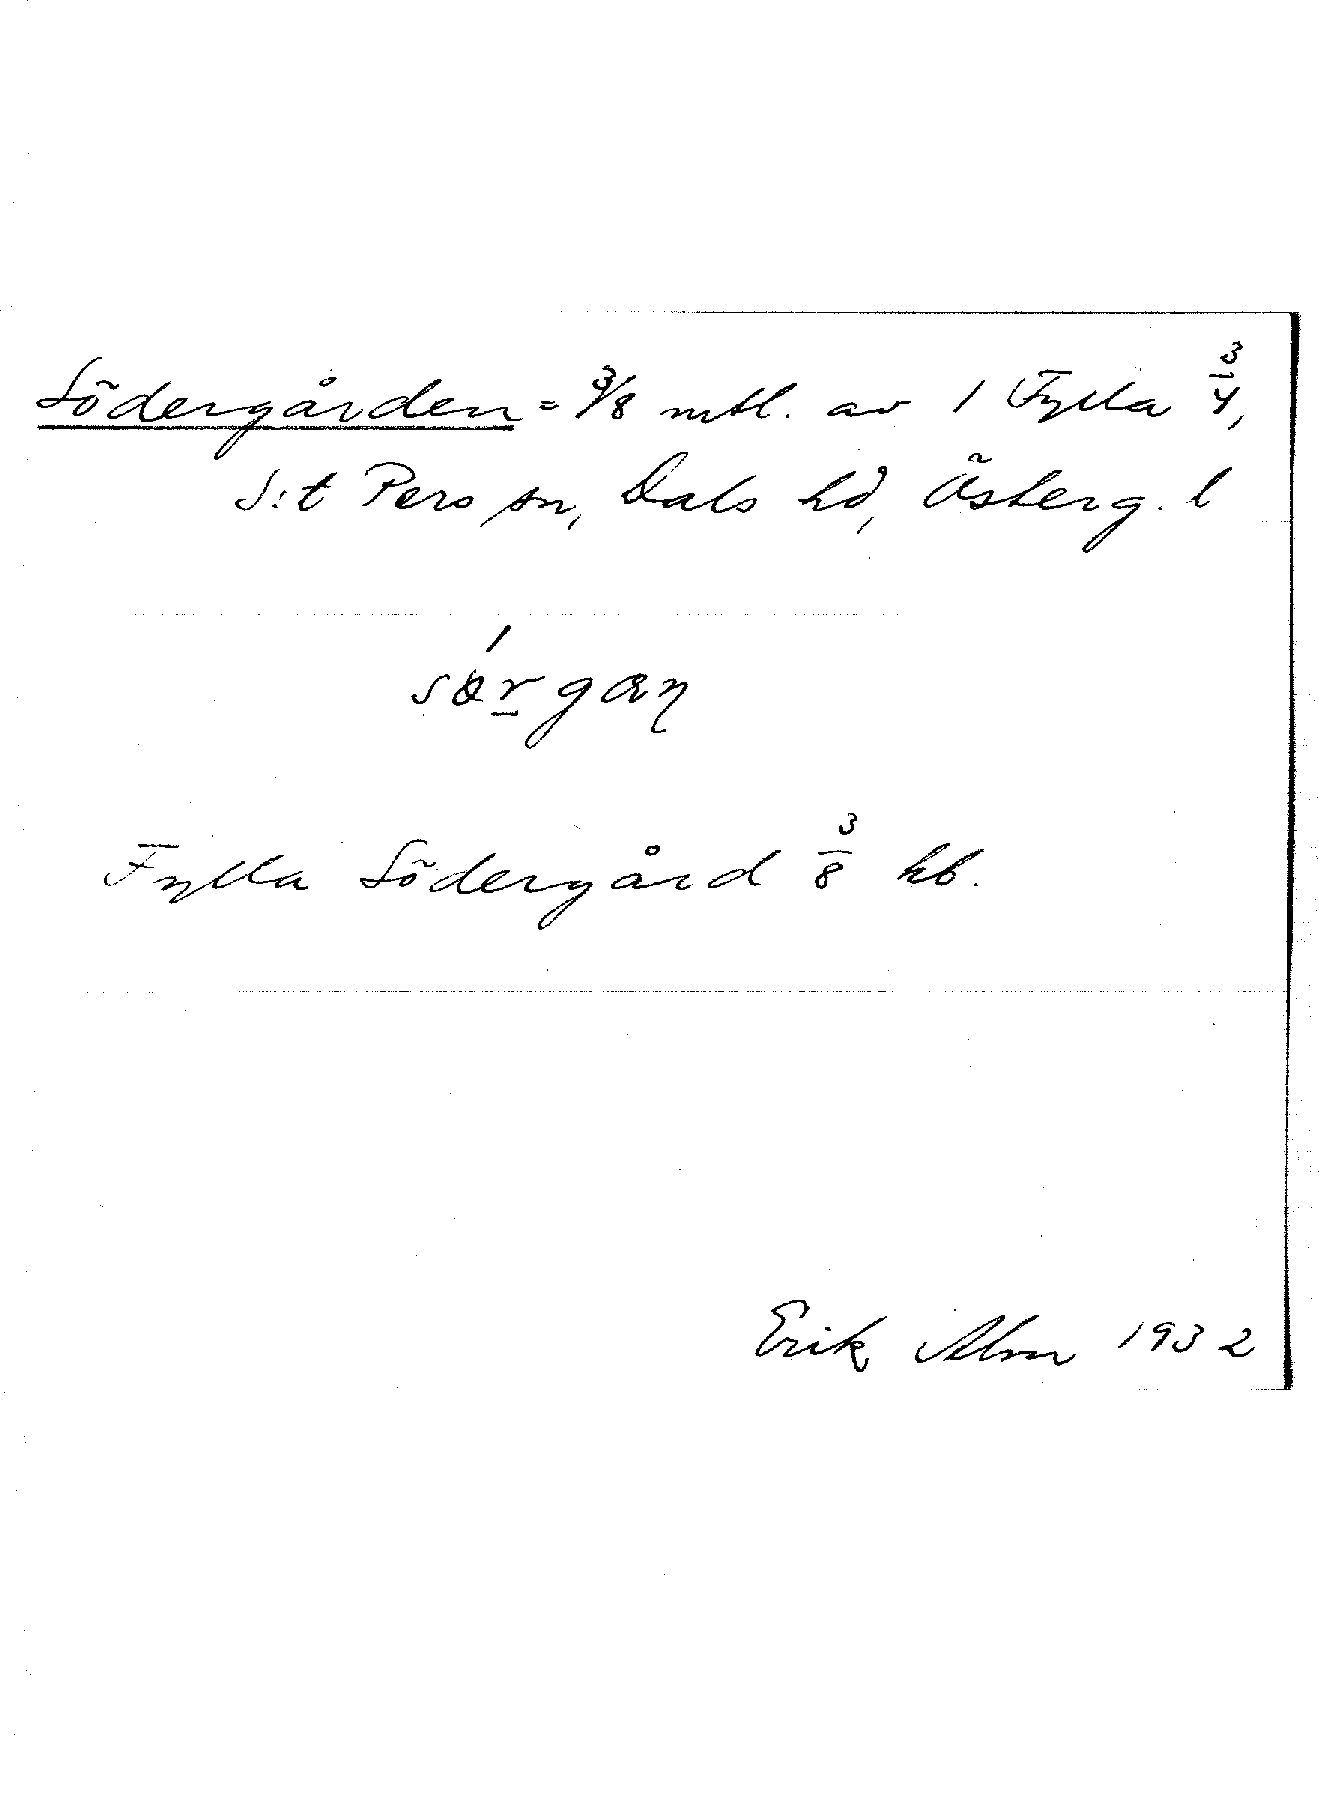 Södergården = 3/8 mtl. av 1 Fylla 3/4,
S:t Pers sn, Dals hd, Österg. l
Fylla Södergård 3/8 hb.
Erik Alm 1932